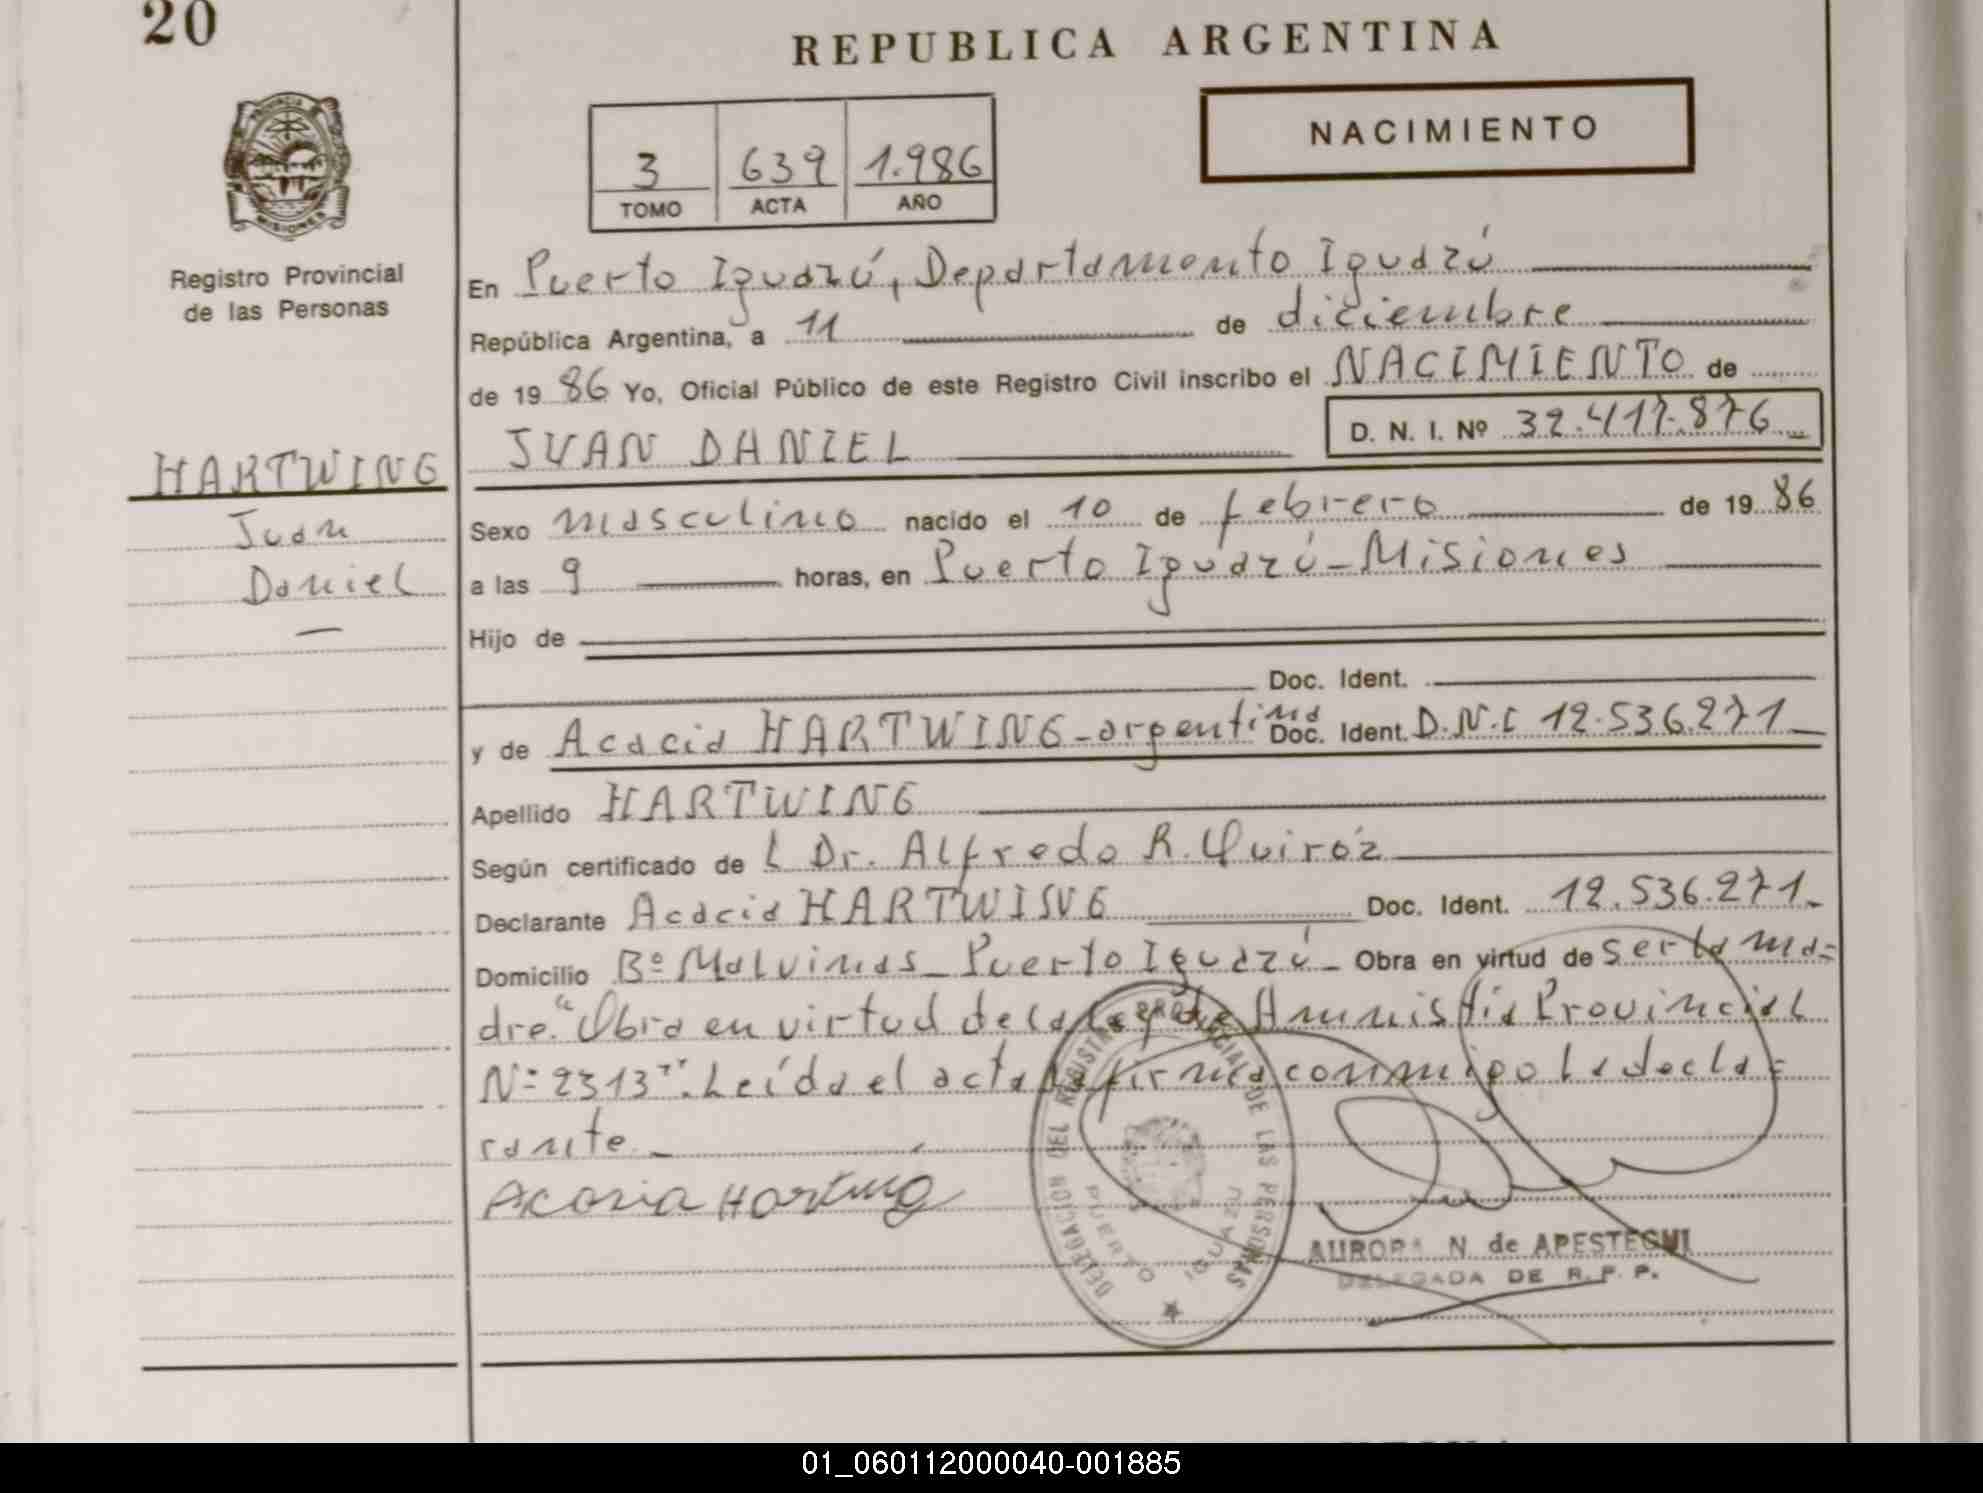 20
REPUBLICA ARGENTINA
NACIMIENTO
3 639 1.986
TOMO ACTA AÑO
PROVINCIA DE MISIONES
Registro Provincial
de las Personas
En Puerto Iguazú, Departamento Iguazú
República Argentina, a 11 de diciembre
de 1986 Yo, Oficial Público de este Registro Civil inscribo el NACIMIENTO de
D. N. I. Nº 32.417.876
HARTWING JUAN DANIEL
Juan
Daniel
Sexo masculino nacido el 10 de febrero de 1986
a las 9 horas, en Puerto Iguazú - Misiones
Hijo de
Doc. Ident.
y de Acacia HARTWING - argentina Doc. Ident. D.N.I 12.536.271
Apellido HARTWING
Según certificado de L Dr. Alfredo R. Quiróz
Declarante Acacia HARTWING Doc. Ident. 12.536.271
Domicilio Bº Malvinas - Puerto Iguazú - Obra en virtud de ser la ma=
dre. "Obra en virtud de la Ley de Amnistia Provincial
Nº 2313". Leída el acta la firma conmigo la decla=
rante.
Acacia Hartwing
DELEGACION DEL REGISTRO PROVINCIAL DE LAS PERSONAS
PUERTO IGUAZU
AURORA N. de APESTEGUI
DELEGADA DE R. P. P.
01_060112000040-001885